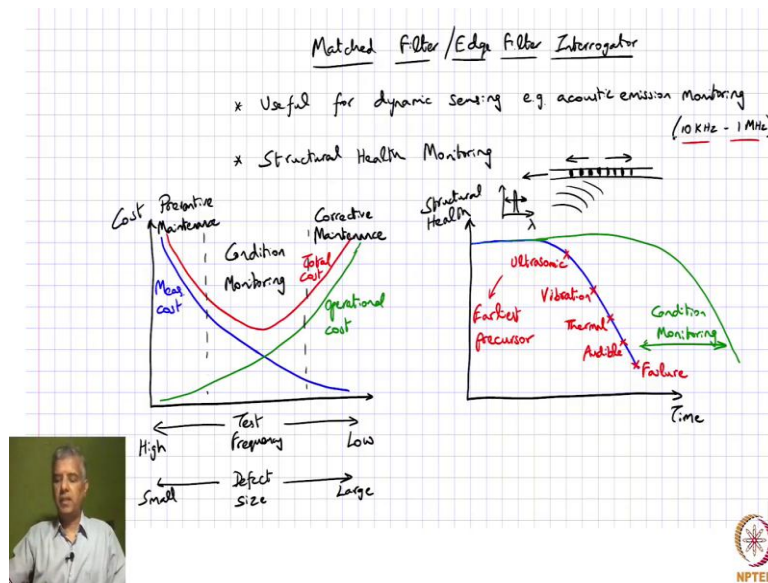 Matched Filter / Edge Filter Interrogator
* Useful for dynamic sensing e.g. acoustic emission monitoring
(10 KHz - 1 MHz)
* Structural Health Monitoring
Cost
Preventive
Maintenance
Condition
Monitoring
Corrective
Maintenance
Meas
cost
Total
cost
Operational
cost
High
Test
Frequency
Low
Small
Defect
size
Large
Structural
Health
λ
Ultrasonic
Earliest
precursor
Vibration
Thermal
Audible
Failure
Condition
Monitoring
Time
NPTEL